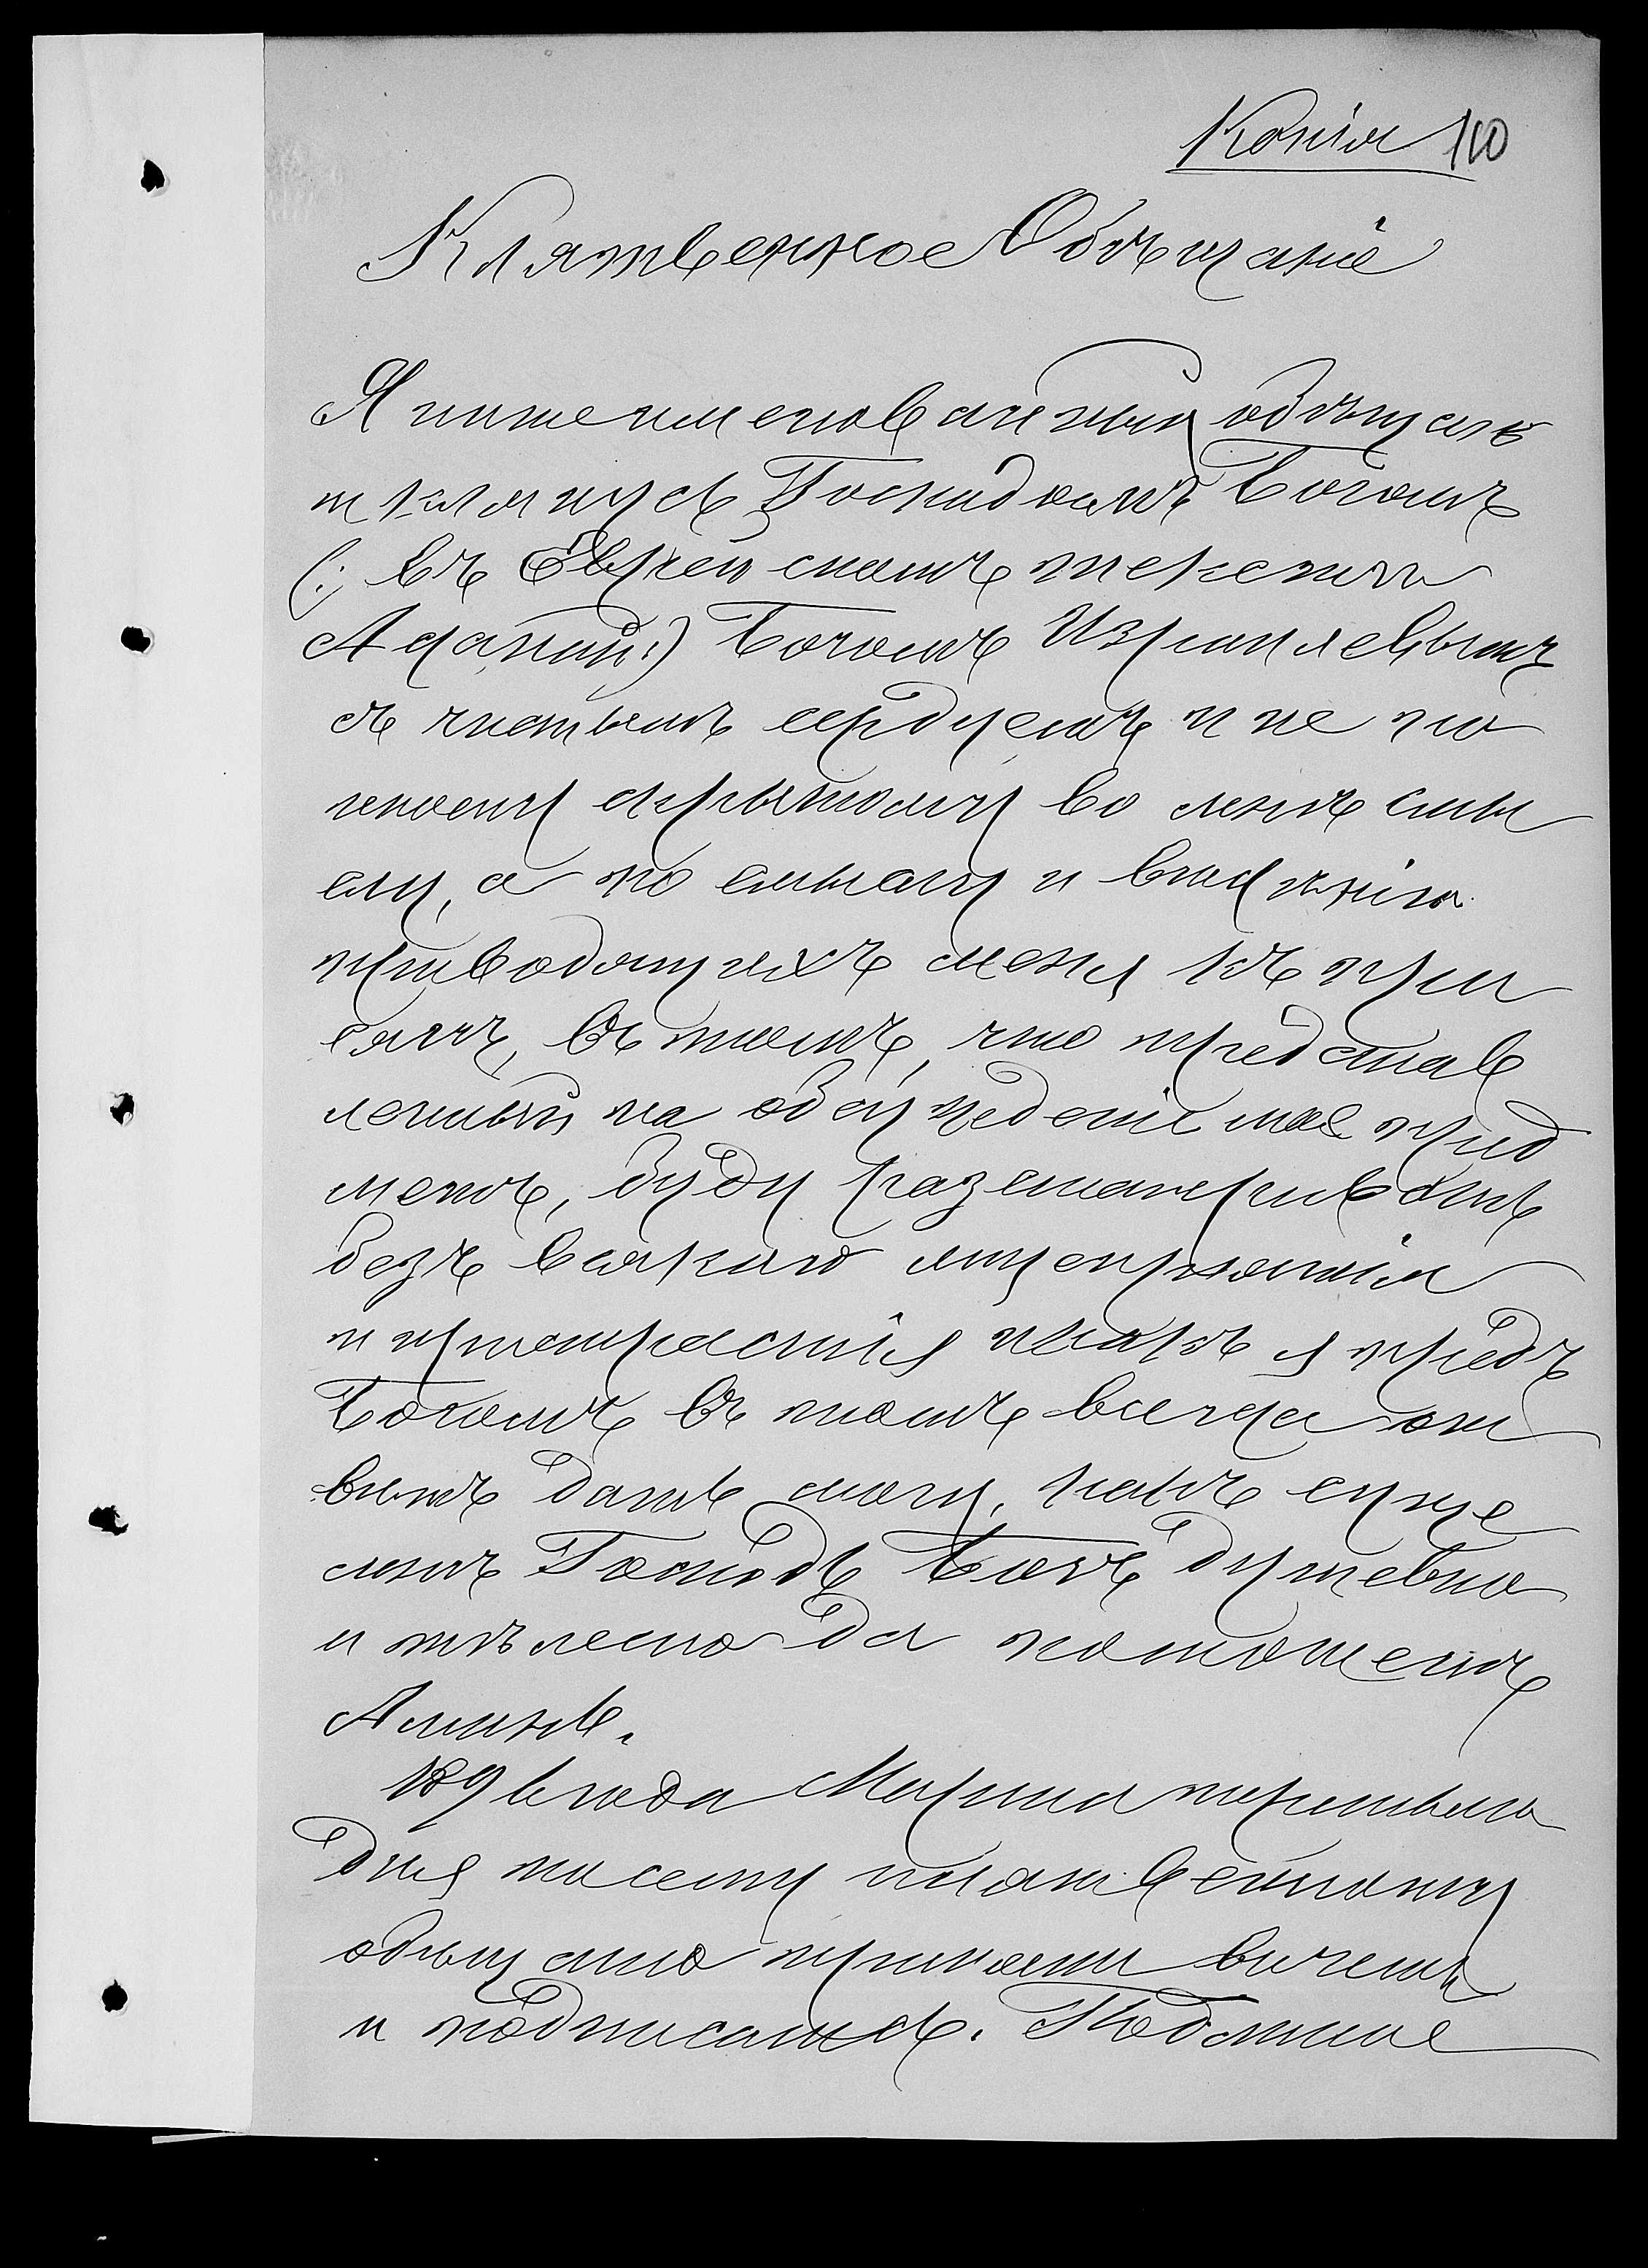 Копія 110
Клятвенное Обѣщаніе
Я нижеименованный обѣщаю
и клянусь Господомъ Богомъ
(: въ Еврейскомъ текстѣ
Адонай:) Богомъ Израилевымъ
съ чистымъ сердцемъ и не по
иному скрытому во мнѣ смы
слу, а по смыслу и вѣдѣнію
приводящихъ меня къ при
сягѣ, въ томъ, что представ
ленный на обсужденіе мое пред
метъ, буду разсматривать
безъ всякаго лицепріятія
и пристрастія какъ я предъ
Богомъ въ томъ всегда от
вѣтъ дать могу, какъ суще
мнѣ Господь Богъ душевно
и тѣлесно да поможетъ
Аминь.
189 года Марта перваго
дня по сему клятвенному
обѣщанію присягали вычеты
и подписались. Подлинное